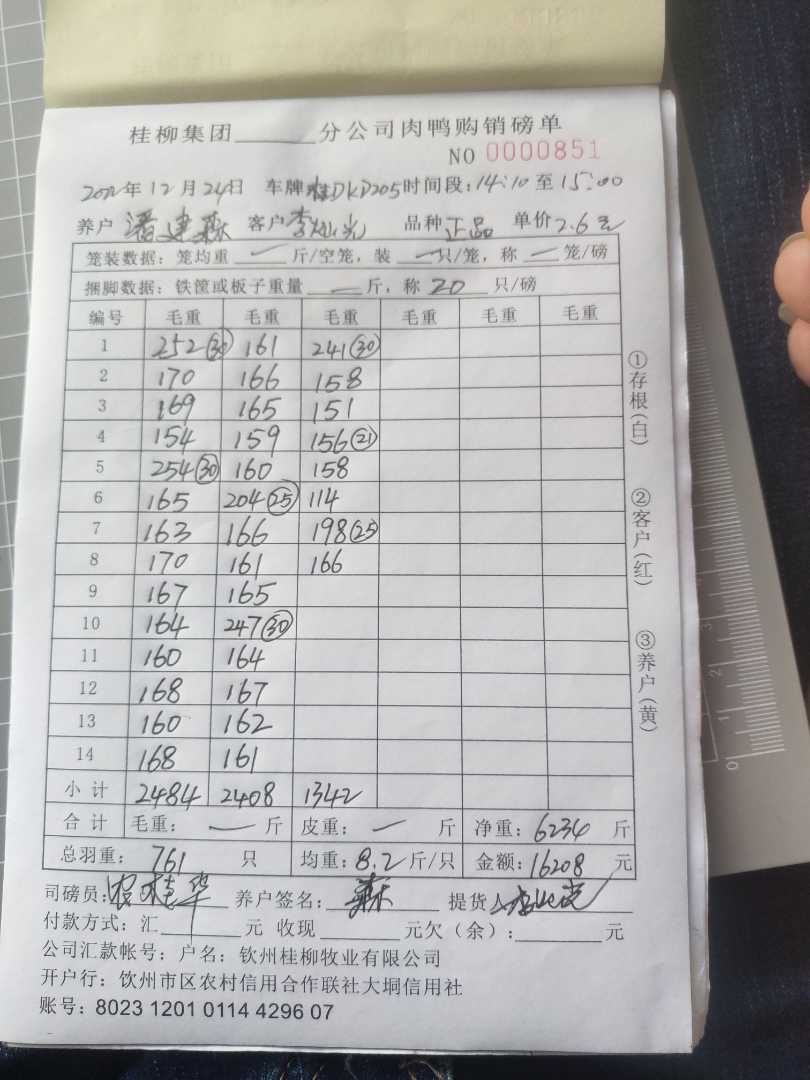 桂柳集团______分公司肉鸭购销磅单
NO 0000851
年12月24日 车牌桂DKD205时间段:14:10至15:00
养户 潘建森 客户李灿光 品种正品 单价2.6元
笼装数据:笼均重 一 斤/空笼,装 一 只/笼,称 一 笼/磅
捆脚数据:铁筐或板子重量 一 斤,称 20 只/磅
编号 毛重 毛重 毛重 毛重 毛重 毛重
1 252㉚ 161 241㉚
2 170 166 158
3 169 165 151
4 154 159 156㉑
5 254㉚ 160 158
6 165 204㉕ 114
7 163 166 198㉕
8 170 161 166
9 167 165
10 164 247㉚
11 160 164
12 168 167
13 160 162
14 168 161
小计 2484 2408 1342
合计 毛重: 一 斤 皮重: 一 斤 净重: 6234 斤
总羽重: 761 只 均重: 8.2 斤/只 金额: 16208 元
司磅员: 农桂华 养户签名: 森 提货
付款方式:汇______元 收现______元欠(余):______元
公司汇款帐号:户名:钦州桂柳牧业有限公司
开户行:饮州市区农村信用合作联社大垌信用社
账号:8023 1201 0114 4296 07
①存根(白)
②客户(红)
③养户(黄)